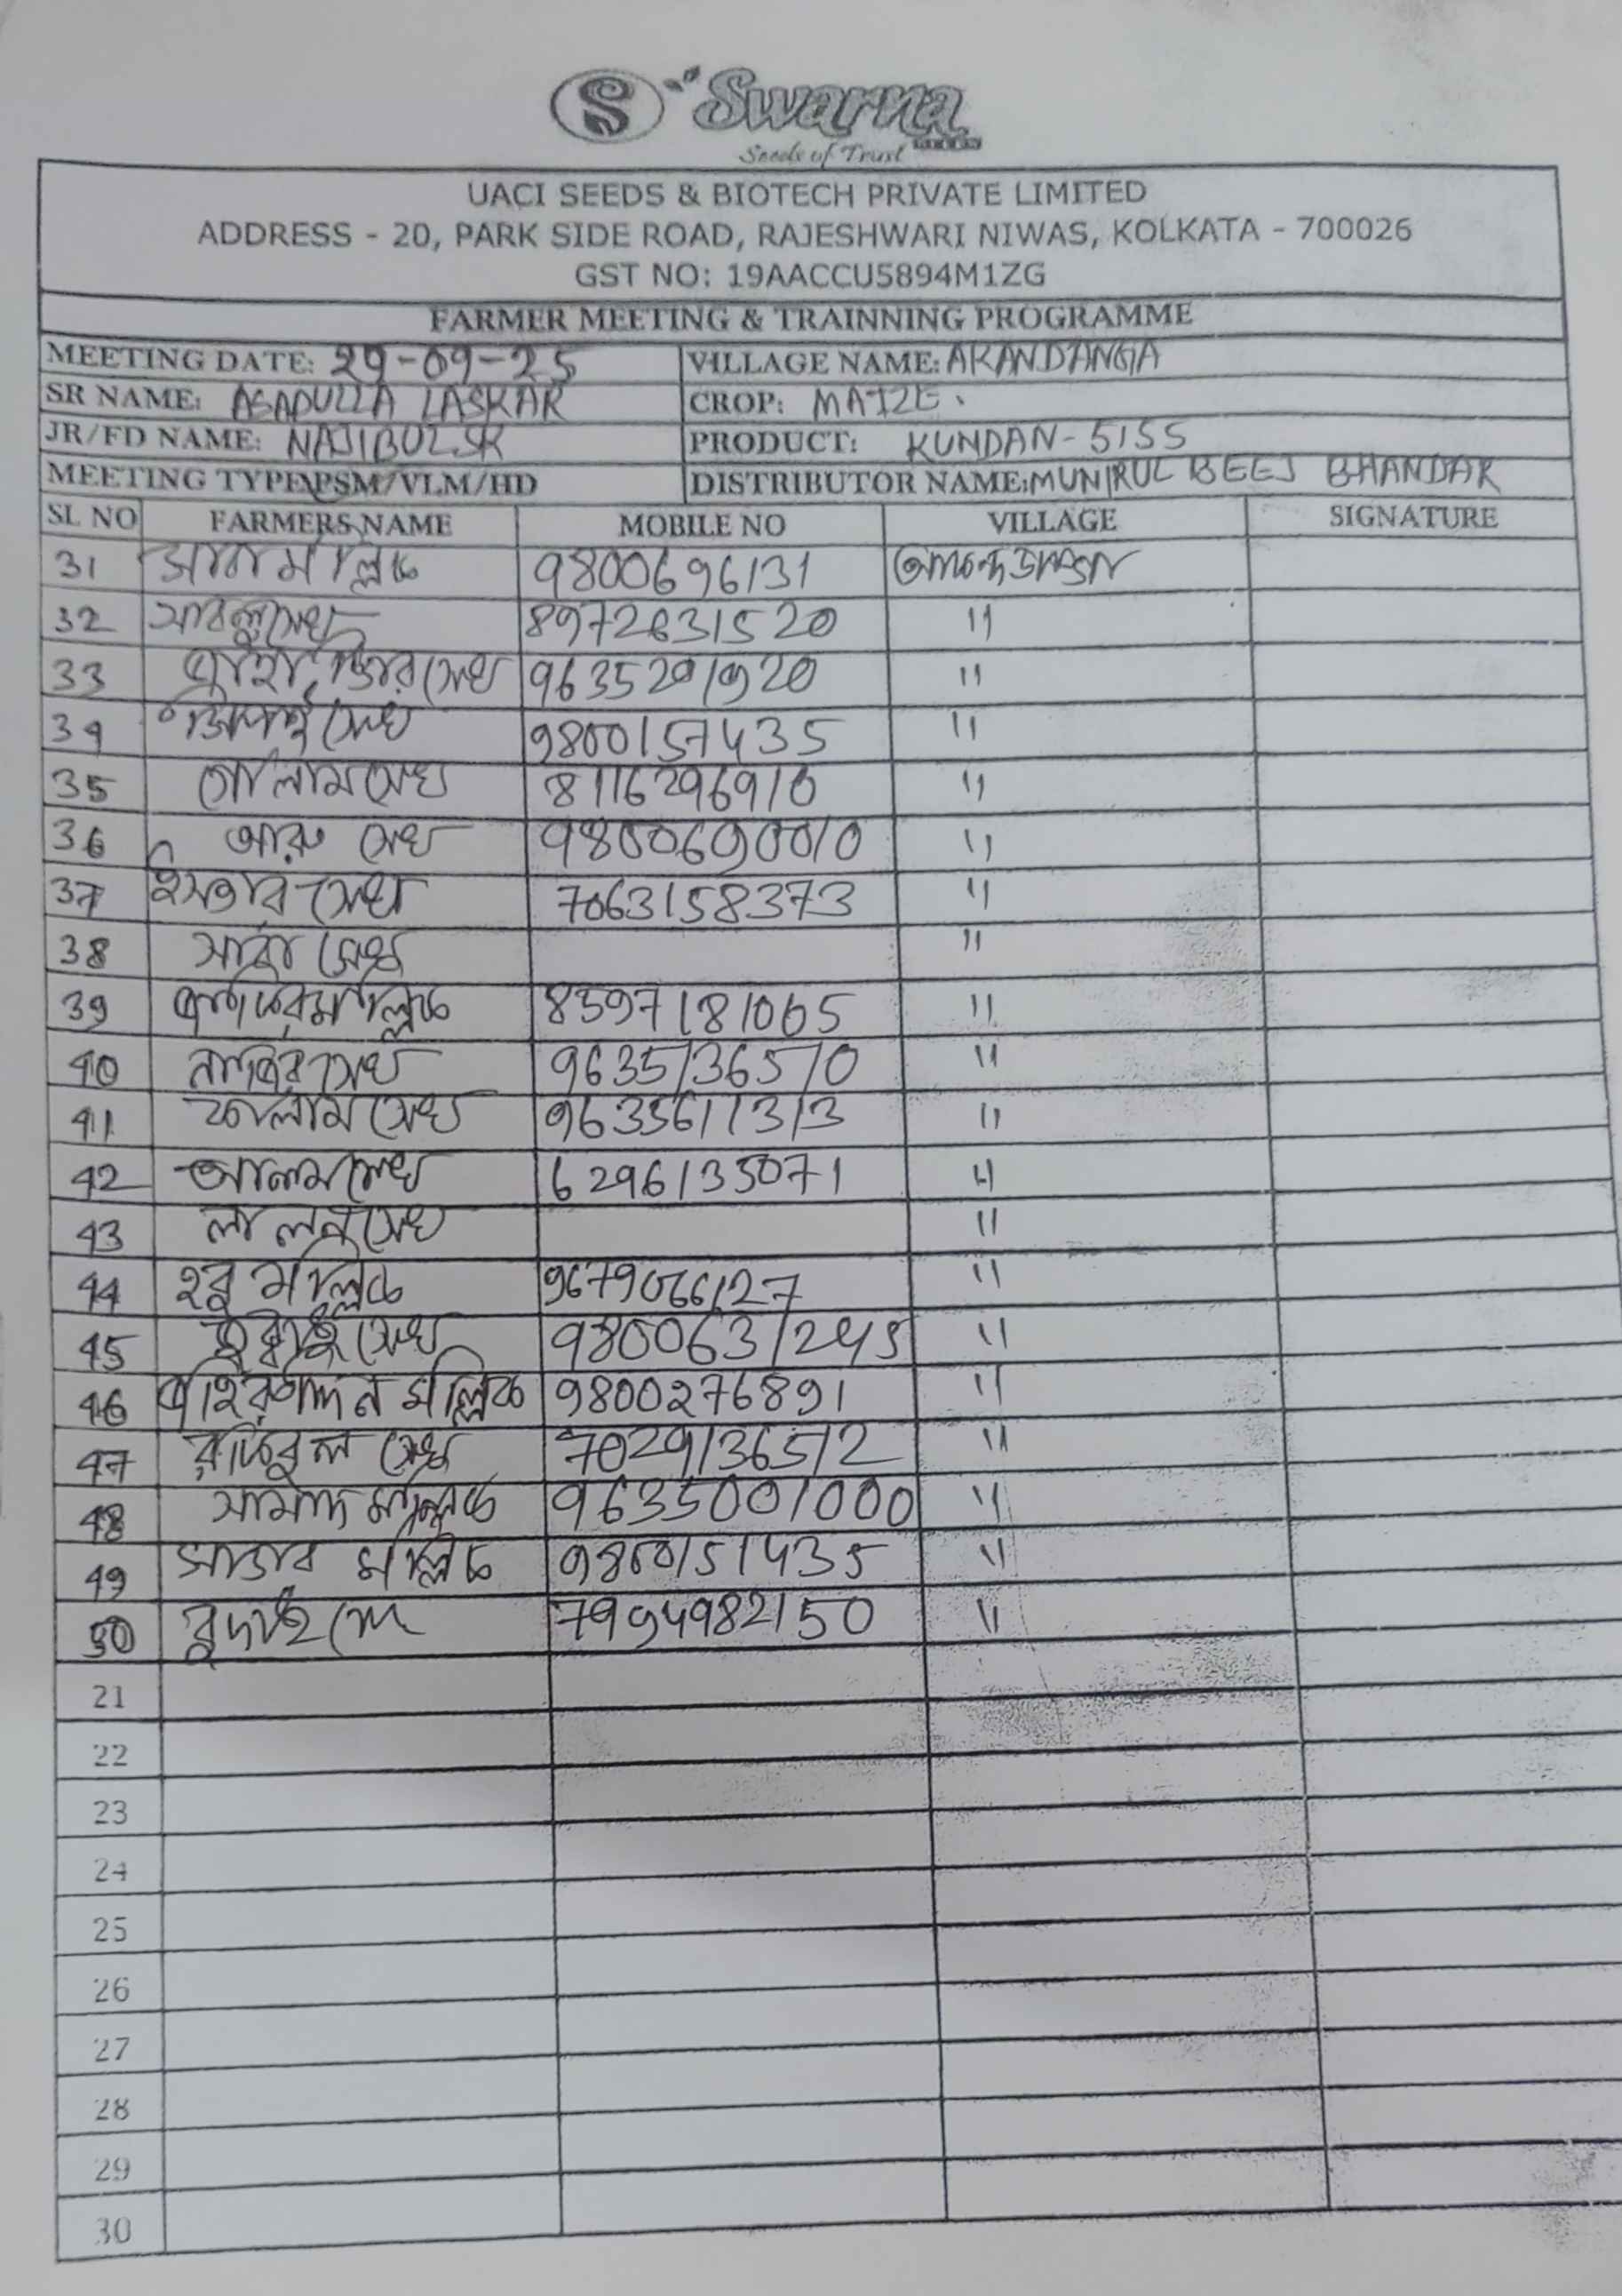 S Swarna
SEEDS
Seeds of Trust
UACI SEEDS & BIOTECH PRIVATE LIMITED
ADDRESS - 20, PARK SIDE ROAD, RAJESHWARI NIWAS, KOLKATA - 700026
GST NO: 19AACCU5894M1ZG
FARMER MEETING & TRAINNING PROGRAMME
MEETING DATE: 29-09-25 VILLAGE NAME: AKANDANGA
SR NAME: ASADULLA LASKAR CROP: MAIZE.
JR/FD NAME: NAJIBUL SK PRODUCT: KUNDAN-5155
MEETING TYPE: PSM/VLM/HD DISTRIBUTOR NAME: MUNIRUL BEEJ BHANDAR
SL NO FARMERS NAME MOBILE NO VILLAGE SIGNATURE
31 মল্লিক 9800696131
32 সাবলু সেখ 8972631520 "
33 সেখ "
34 সেখ 9800157435 "
35 গোলাম সেখ 8116296910 "
36 আরু সেখ 9800690010 "
37 ইসতার সেখ 7063158373 "
38 সেখ "
39 মল্লিক 8397181065 "
40 সেখ 9635136510 "
41 কালাম সেখ 9635611313 "
42 আলম সেখ 6296135071 "
43 লালন সেখ "
44 হবু মল্লিক 9679066127 "
45 সেখ 9800631245 "
46 মল্লিক 9800276891 "
47 রফিকুল সেখ 7029136512 "
48 সামাদ মল্লিক 9635001000 "
49 সাত্তার মল্লিক 9800151435 "
50 7994982150 "
21
22
23
24
25
26
27
28
29
30